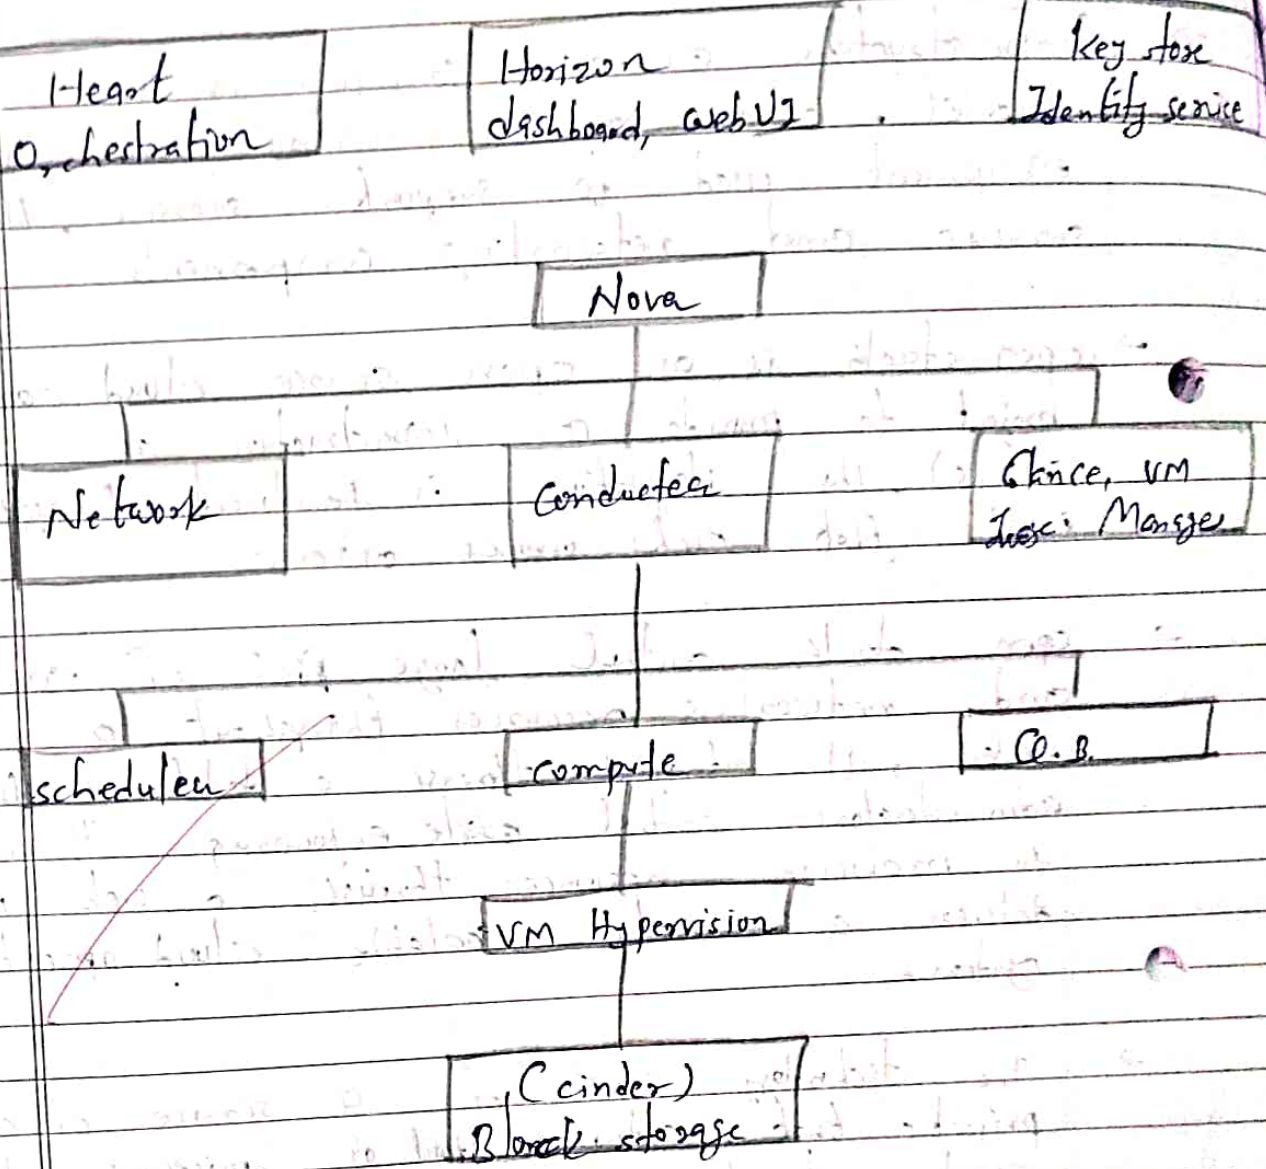 Heart
Orchestration
Horizon
dashboard, web UI
Key store
Identity service
Nova
Network
Conductor
Glance, VM
Manage
scheduler
compute
VM Hypervision
(cinder)
Block storage